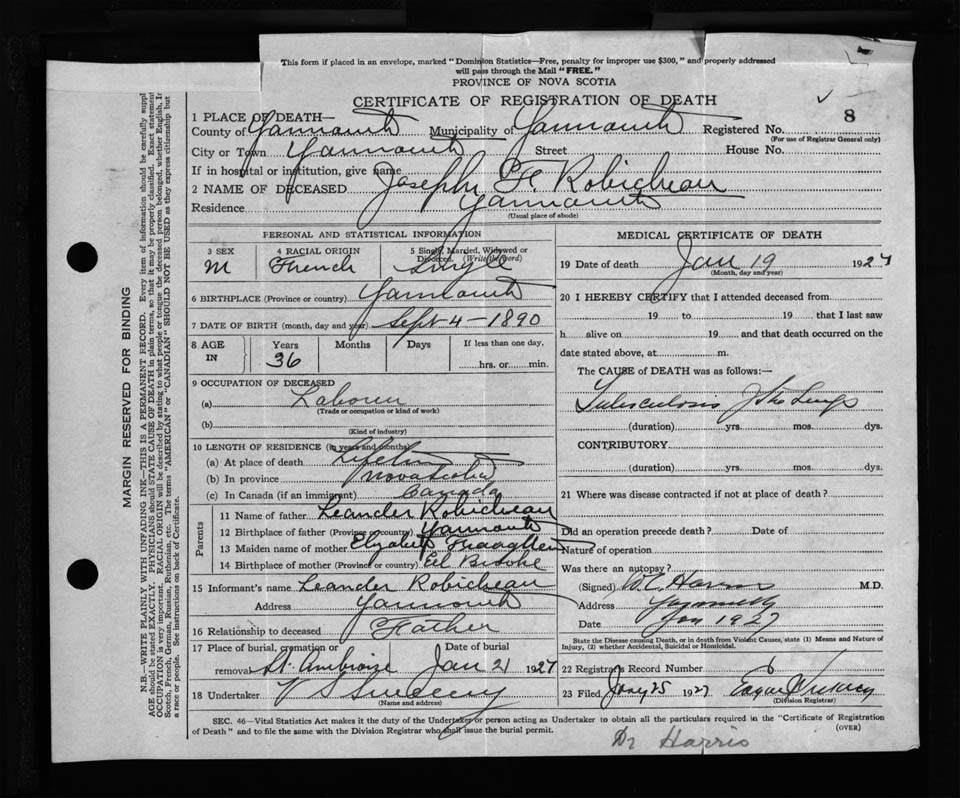 This form if placed in an envelope, marked "Dominion Statistics—Free, penalty for improper use $300," and properly addressed
will pass through the Mail "FREE."
PROVINCE OF NOVA SCOTIA
CERTIFICATE OF REGISTRATION OF DEATH
1 PLACE OF DEATH—
County of Yarmouth Municipality of Yarmouth Registered No. 8
(For use of Registrar General only)
City or Town Yarmouth Street House No.
If in hospital or institution, give name
2 NAME OF DECEASED Joseph F. Robicheau
Residence Yarmouth
(Usual place of abode)
PERSONAL AND STATISTICAL INFORMATION
3 SEX 4 RACIAL ORIGIN 5 Single, Married, Widowed or Divorced. (Write the word)
M French Single
6 BIRTHPLACE (Province or country) Yarmouth
7 DATE OF BIRTH (month, day and year) Sept-4-1890
8 AGE IN Years Months Days If less than one day,
36 hrs. or min.
9 OCCUPATION OF DECEASED
(a) Laborer
(Trade or occupation or kind of work)
(b)
(Kind of industry)
10 LENGTH OF RESIDENCE (in years and months)
(a) At place of death Lifetime
(b) In province Nova Scotia
(c) In Canada (if an immigrant) Canada
Parents
11 Name of father Leander Robicheau
12 Birthplace of father (Province or country) Yarmouth
13 Maiden name of mother Elizabeth
14 Birthplace of mother (Province or country) Eel Brook
15 Informant's name Leander Robicheau
Address Yarmouth
16 Relationship to deceased Father
17 Place of burial, cremation or Date of burial
removal St. Ambroise Jan 21 1927
18 Undertaker V S Sweeny
(Name and address)
MEDICAL CERTIFICATE OF DEATH
19 Date of death Jan 19 1927
(Month, day and year)
20 I HEREBY CERTIFY that I attended deceased from
19 to 19 that I last saw
h alive on 19 and that death occurred on the
date stated above, at m.
The CAUSE of DEATH was as follows:—
Tuberculosis of the Lungs
(duration) yrs. mos. dys.
CONTRIBUTORY.
(duration) yrs. mos. dys.
21 Where was disease contracted if not at place of death?
Did an operation precede death? Date of
Nature of operation
Was there an autopsy?
(Signed) W. C. Harris M.D.
Address Yarmouth
Date Jan 1927
State the Disease causing Death, or in death from Violent Causes, state (1) Means and Nature of
Injury, (2) whether Accidental, Suicidal or Homicidal.
22 Registrar's Record Number 6
23 Filed Jany 25 1927 Edgar
(Division Registrar)
SEC. 46—Vital Statistics Act makes it the duty of the Undertaker or person acting as Undertaker to obtain all the particulars required in the "Certificate of Registration
of Death" and to file the same with the Division Registrar who shall issue the burial permit. (OVER)
Dr Harris
MARGIN RESERVED FOR BINDING
N.B.—WRITE PLAINLY WITH UNFADING INK—THIS IS A PERMANENT RECORD. Every item of information should be carefully suppl
AGE should be stated EXACTLY. PHYSICIANS should STATE CAUSE OF DEATH in plain terms, so that it may be properly classified. Exact statement
OCCUPATION is very important. RACIAL ORIGIN will be described by stating to what people or tongue the deceased person belonged, whether English, Ir
Scotch, French, German, Russian, Ruthenian, etc. The terms "AMERICAN" or "CANADIAN" SHOULD NOT BE USED as they express citizenship but
a race or people. See instructions on back of Certificate.